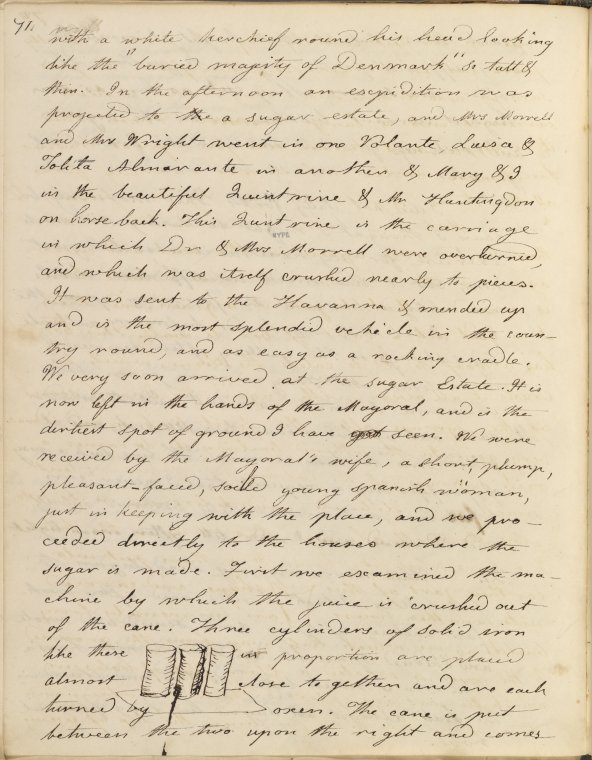 71.
with a white kerchief round his head looking
like the "buried majesty of Denmark" so tall &
thin. In the afternoon an expedition was
projected to the a sugar estate, and Mrs Morrell
and Mrs Wright went in one Volante, Luisa &
Lolita Almirante in another & Mary & I
in the beautiful Quintrine & Mr Huntingdon
on horse back. This Quintrine is the carriage
NYPL
in which Edr & Mrs Morrell were overturned,
and which was itself crushed nearly to pieces.
It was sent to the Havanna & mended up
and is the most splendid vehicle in the coun-
try round, and as easy as a rocking cradle.
We very soon arrived at the sugar Estate. It is
now left in the hands of the Mayoral, and is the
dirtiest spot of ground I have yet seen. We were
received by the Mayoral's wife, a short, plump,
pleasant-faced, soiled young spanish woman,
just in keeping with the place, and we pro-
ceeded directly to the houses where the
sugar is made. First we examined the ma-
chine by which the juice is crushed out
of the cane. Three cylinders of solid iron
like these in proportion are placed
almost close to gether and are each
turned by oxen. The cane is put
between the two upon the right and comes